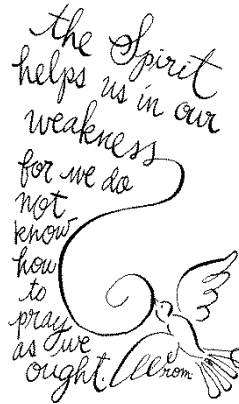 the Spirit
helps us in our
weakness
for we do
not
know
how
to
pray
as we
ought.